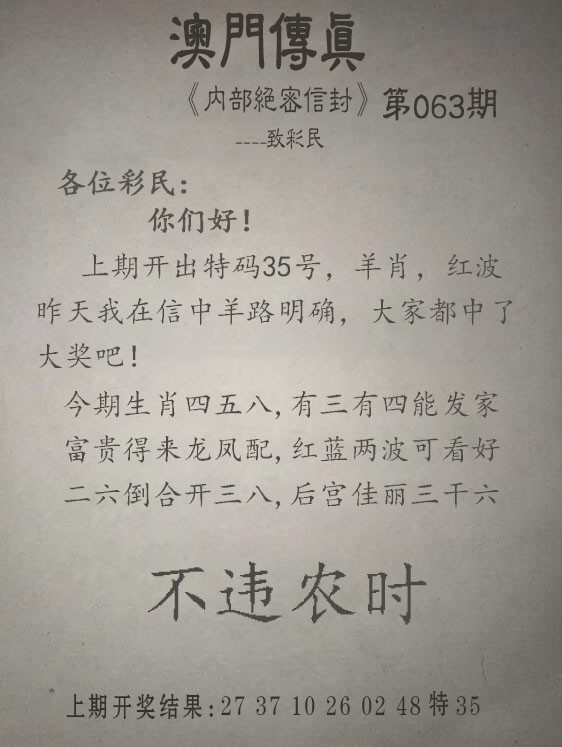 澳門傳眞
《内部絕密信封》第063期
----致彩民
各位彩民:
你们好!
上期开出特码35号，羊肖，红波
昨天我在信中羊路明确，大家都中了
大奖吧!
今期生肖四五八,有三有四能发家
富贵得来龙凤配,红蓝两波可看好
二六倒合开三八,后宫佳丽三干六
不违农时
上期开奖结果:27 37 10 26 02 48 特 35